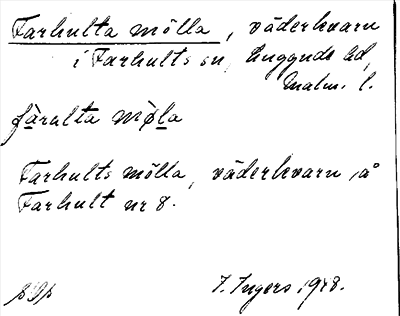 Farhulta mölla, väderkvarn
i Farhults sn, Luggude hd,
Malm. l.
fàralta mø̀la
Farhults mölla, väderkvarn, å
Farhult nr 8.
I. Ingers 1948.